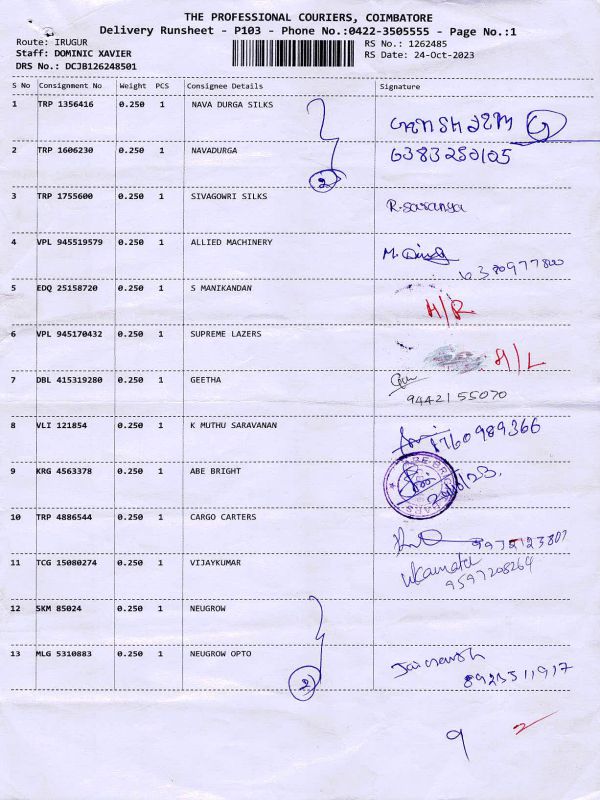 THE PROFESSIONAL COURIERS, COIMBATORE
Delivery Runsheet - P103 - Phone No.:0422-3505555 - Page No.:1
Route: IRUGUR
RS No.: 1262485
Staff: DOMINIC XAVIER
RS Date: 24-Oct-2023
DRS No.: DCJB126248501
S No Consignment No Weight PCS Consignee Details Signature
1 TRP 1356416 0.250 1 NAVA DURGA SILKS
2 TRP 1606230 0.250 1 NAVADURGA 6383250105
2
3 TRP 1755600 0.250 1 SIVAGOWRI SILKS R.Saranya
4 VPL 945519579 0.250 1 ALLIED MACHINERY
5 EDQ 25158720 0.250 1 S MANIKANDAN
H/R
6 VPL 945170432 0.250 1 SUPREME LAZERS
H/L
7 DBL 415319280 0.250 1 GEETHA
9442155070
8 VLI 121854 0.250 1 K MUTHU SARAVANAN
9 KRG 4563378 0.250 1 ABE BRIGHT
10 TRP 4886544 0.250 1 CARGO CARTERS
11 TCG 15080274 0.250 1 VIJAYKUMAR
9597208264
12 SKM 85024 0.250 1 NEUGROW
13 MLG 5310883 0.250 1 NEUGROW OPTO
2
9 2